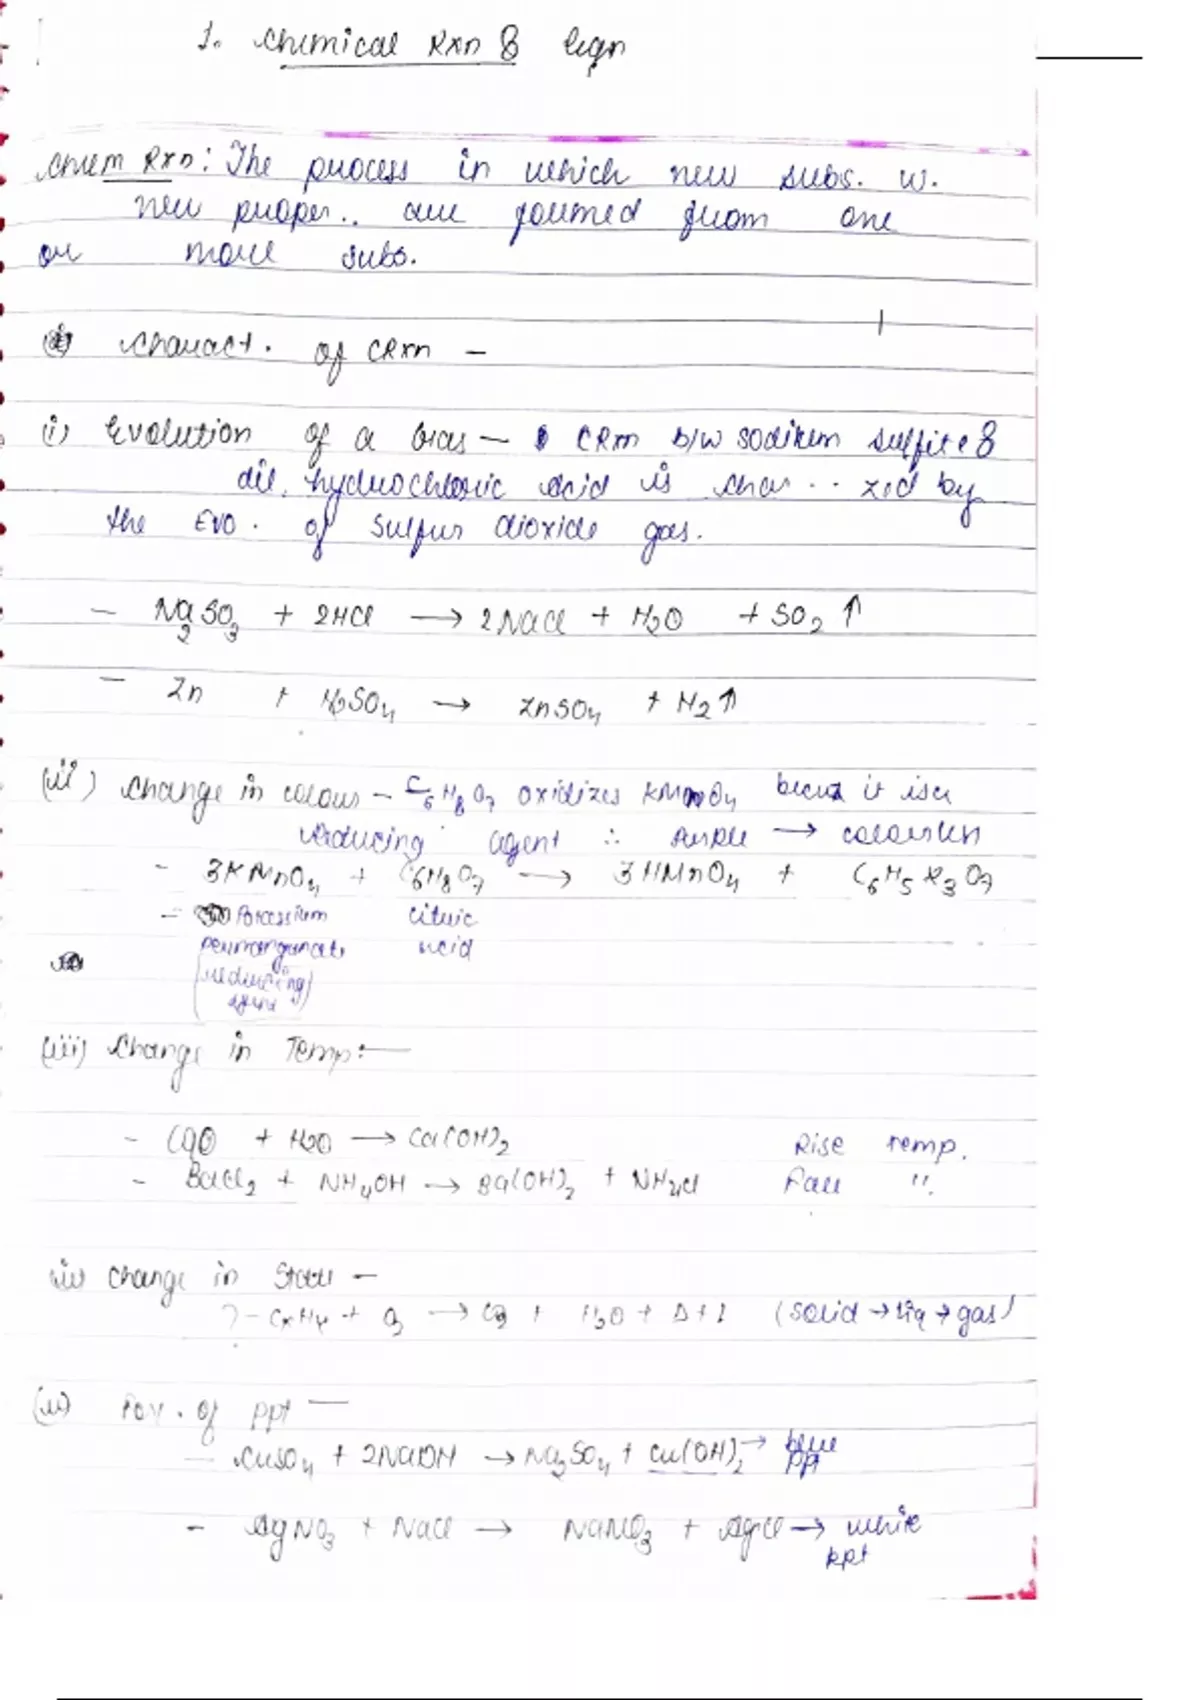 1. Chemical Rxn & Eqn
Chem Rxn: The process in which new subs. w.
new proper.. are formed from one
or more subs.
Charact. of CRxn -
i) Evolution of a Gas - CRxn b/w sodium sulfite &
dil. hydrochloric acid is char .. zed by
the Evo. of sulfur dioxide gas.
- Na2SO3 + 2HCl → 2NaCl + H2O + SO2 ↑
- Zn + H2SO4 → ZnSO4 + H2↑
(ii) Change in colour - C6H8O7 oxidizes KMnO4 it is a
reducing agent ∴ purple → colourless
- 3KMnO4 + C6H8O7 → 3HMnO4 + C6H5K3O7
- Potassium citric
permanganate acid
(reducing
(iii) Change in Temp:-
- CaO + H2O → Ca(OH)2 Rise temp.
- BaCl2 + NH4OH → Ba(OH)2 + NH4Cl Fall ".
iv) Change in State -
- CxHy + O2 → + H2O + Δ + (solid → liq → gas)
(v) For. of ppt -
- CuSO4 + 2NaOH → Na2SO4 + Cu(OH)2 → blue
ppt
- AgNO3 + NaCl → NaNO3 + AgCl → white
ppt